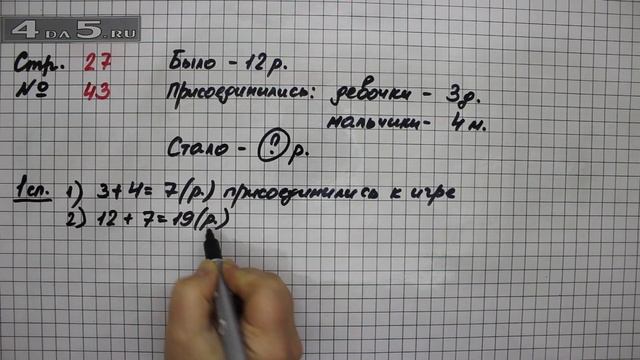 4 DA 5.RU
Стр. 27
№ 43
Было - 12 р.
Присоединились: девочки - 3 д.
мальчики - 4 м.
Стало - ? р.
1 сп. 1) 3 + 4 = 7 (р.) присоединились к игре
2) 12 + 7 = 19 (р.)